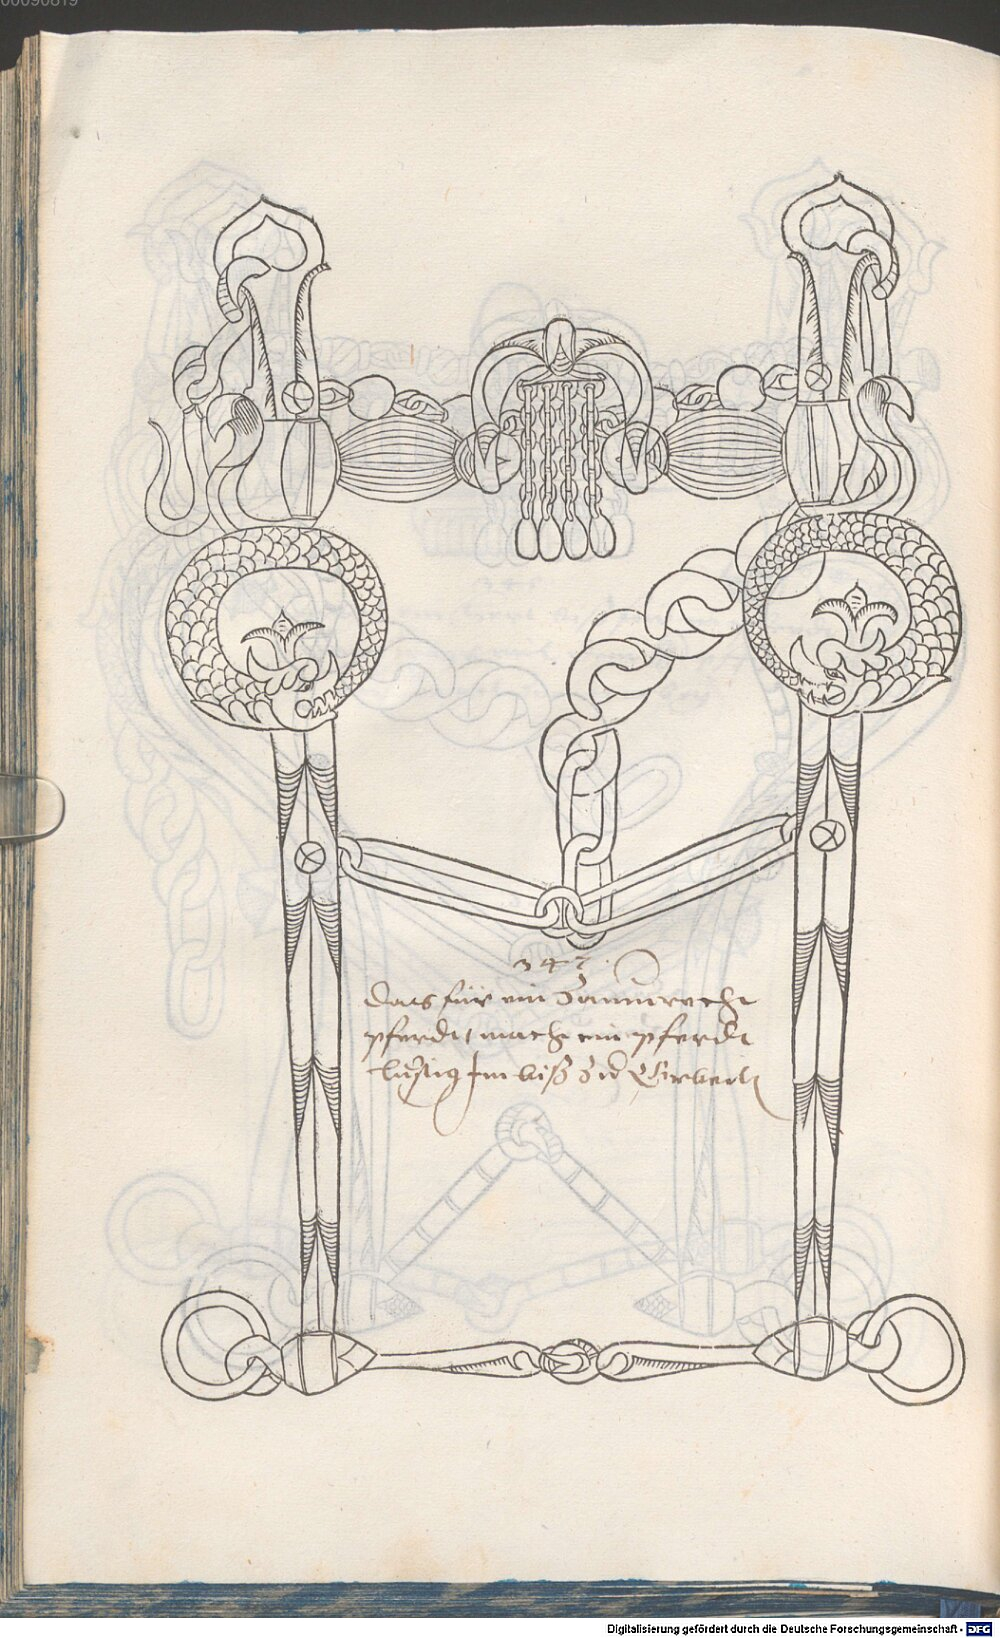 00090819
347
Dais für ein Zaumrecht
pferdt mach ein pferdt
lustig Im biß Zu
Digitalisierung gefördert durch die Deutsche Forschungsgemeinschaft - DFG